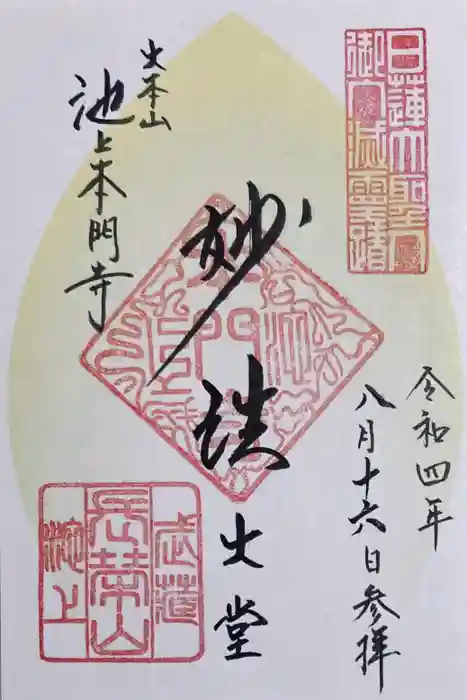 日蓮大聖人
御入滅霊蹟
令和四年
八月十六日参拝
妙珠
大堂
大本山
池上本門寺
武蔵
長栄山
池上